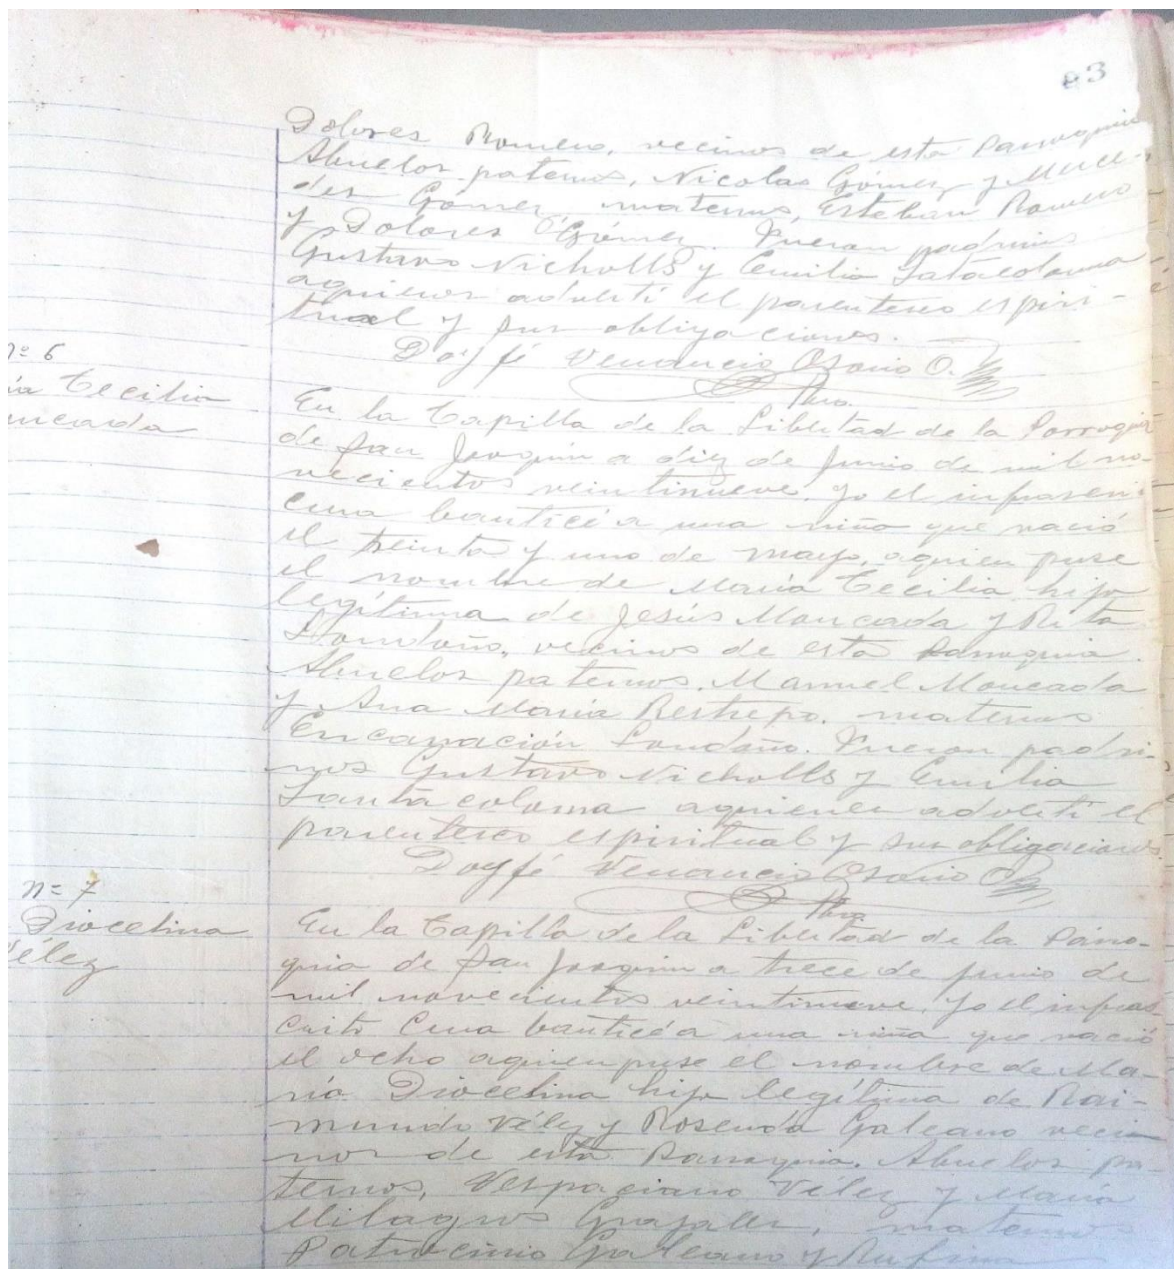 83
Dolores Romero, vecinos de esta Parroquia
Abuelos paternos, Nicolas Gómez y Merce-
des Gómez maternos, Esteban Romero
y Dolores Gómez. Fueron padrinos
Gustavo Nicholls y Emilia Santacoloma
aquienes advertí el parentesco espiri-
tual y sus obligaciones.
Doy fé Venancio Osorio O.
Pbro.
nº 6
ía Cecilia
oncada
En la Capilla de la Libertad de la Parroquia
de San Joaquin a diez de Junio de mil no-
vecientos veintinueve, yo el infrascri
Cura bauticé a una niña que nació
el treinta y uno de mayo, aquien puse
el nombre de María Cecilia hija
legítima de Jesús Moncada y Rita
Londoño, vecinos de esta Parroquia.
Abuelos paternos. Manuel Moncada
y Ana María Restrepo. maternos
Encarnación Londoño. Fueron padri-
nos Gustavo Nicholls y Emilia
Santa coloma aquienes advertí el
parentesco espiritual y sus obligaciones.
Doy fé Venancio Osorio O.
Pbro
n= 7
Diocelina
élez
En la Capilla de la Libertad de la Parro-
quia de San Joaquin a trece de junio de
mil novecientos veintinueve, yo el infras-
crito Cura bauticé a una niña que nació
el ocho aquien puse el nombre de Ma-
ría Diocelina hija legítima de Rai-
mundo Vélez y Rosenda Galeano veci
nos de esta Parroquia. Abuelos pa-
ternos, Vespaciano Vélez y María
Milagros Grajales, maternos
Patrocinio Galeano y Rufina